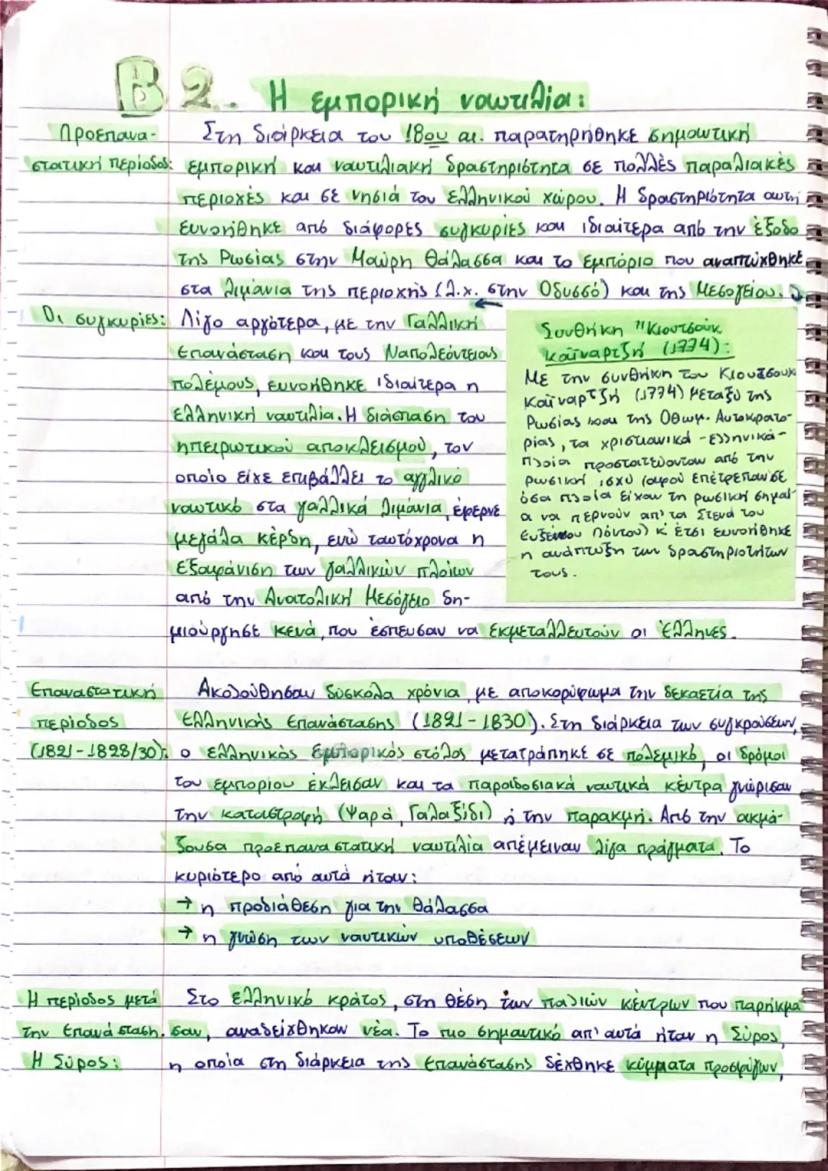 Β 2. Η εμπορική ναυτιλία:
Προεπανα-
στατική περίοδος:
Στη διάρκεια του 18ου αι. παρατηρήθηκε σημαντική
εμπορική και ναυτιλιακή δραστηριότητα σε πολλές παραλιακές
περιοχές και σε νησιά του ελληνικού χώρου. Η δραστηριότητα αυτή
ευνοήθηκε από διάφορες συγκυρίες και ιδιαίτερα από την έξοδο
της Ρωσίας στην Μαύρη Θάλασσα και το εμπόριο που αναπτύχθηκε
στα λιμάνια της περιοχής (λ.χ. στην Οδησσό) και της Μεσογείου.
Οι συγκυρίες:
Λίγο αργότερα, με την Γαλλική
Επανάσταση και τους Ναπολεόντειους
πολέμους, ευνοήθηκε ιδιαίτερα η
ελληνική ναυτιλία. Η διάσπαση του
ηπειρωτικού αποκλεισμού, τον
οποίο είχε επιβάλλει το αγγλικό
ναυτικό στα γαλλικά λιμάνια, έφερνε
μεγάλα κέρδη, ενώ ταυτόχρονα η
εξαφάνιση των γαλλικών πλοίων
από την Ανατολική Μεσόγειο δη-
μιούργησε κενά, που έσπευσαν να εκμεταλλευτούν οι Έλληνες.
Συνθήκη "Κιουτσούκ
Καϊναρτζή (1774):
Με την συνθήκη του Κιουτσουκ
Καϊναρτζή (1774) μεταξύ της
Ρωσίας και της Οθωμ. Αυτοκρατο-
ρίας, τα χριστιανικά - ελληνικά-
πλοία προστατεύονταν από την
ρωσική ισχύ (αφού επέτρεπαν σε
όσα πλοία είχαν τη ρωσική σημαί-
α να περνούν απ'τα Στενά του
Ευξείνου Πόντου) κ' έτσι ευνοήθηκε
η ανάπτυξη των δραστηριοτήτων
τους.
Επαναστατική
περίοδος
(1821-1828/30):
Ακολούθησαν δύσκολα χρόνια, με αποκορύφωμα την δεκαετία της
Ελληνικής Επανάστασης (1821-1830). Στη διάρκεια των συγκρούσεων,
ο ελληνικός εμπορικός στόλος μετατράπηκε σε πολεμικό, οι δρόμοι
του εμπορίου έκλεισαν και τα παραδοσιακά ναυτικά κέντρα γνώρισαν
την καταστροφή (Ψαρά, Γαλαξίδι) ή την παρακμή. Από την ακμά-
ζουσα προεπαναστατική ναυτιλία απέμειναν λίγα πράγματα. Το
κυριότερο από αυτά ήταν:
→ η προδιάθεση για την θάλασσα
→ η γνώση των ναυτικών υποθέσεων
Η περίοδος μετά
την Επανάσταση.
Η Σύρος:
Στο ελληνικό κράτος, στη θέση των παλιών κέντρων που παρήκμα
σαν, αναδείχθηκαν νέα. Το πιο σημαντικό απ' αυτά ήταν η Σύρος,
η οποία στη διάρκεια της Επανάστασης δέχθηκε κύματα προσφύγων,